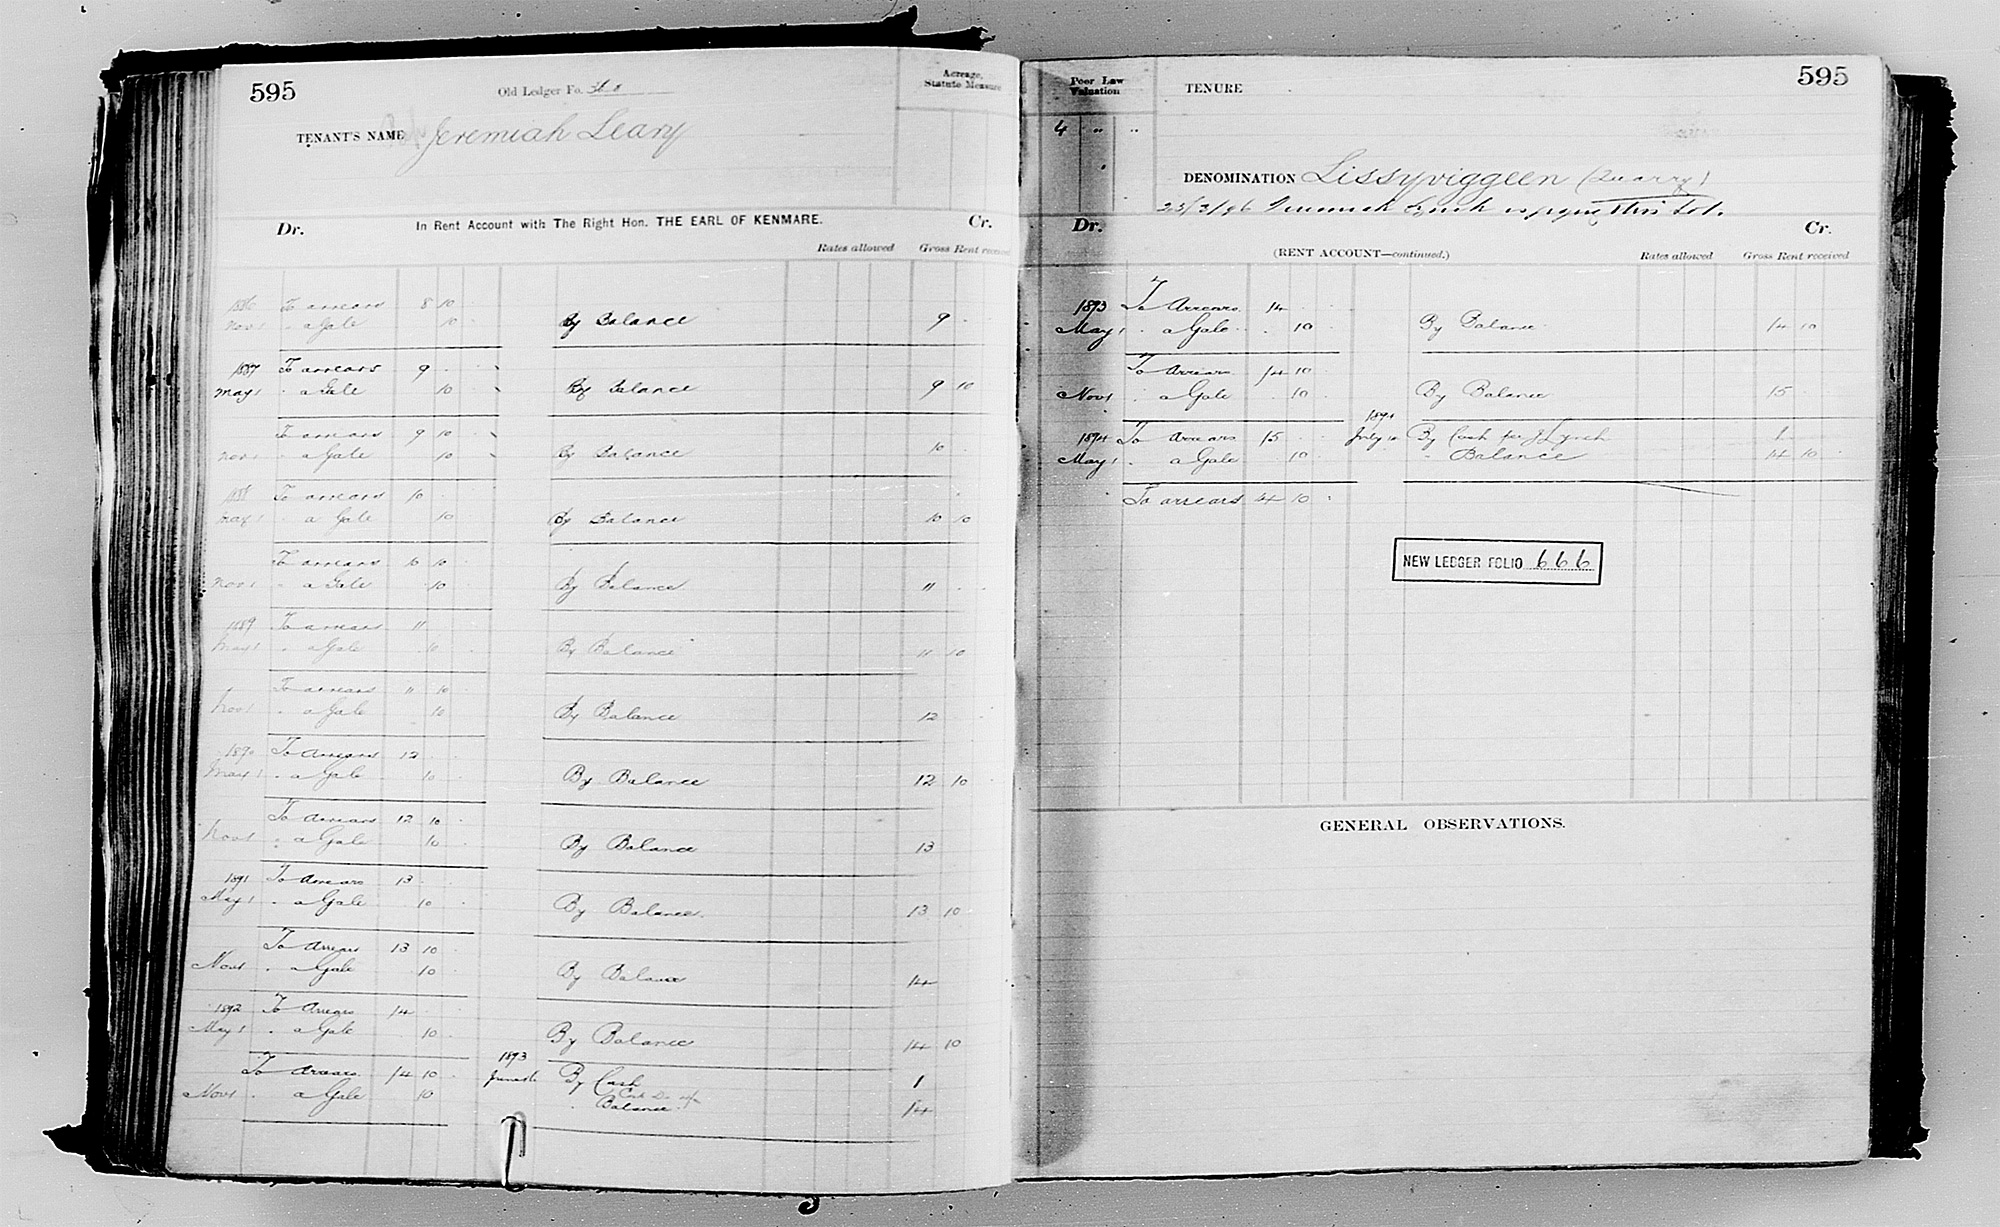 595
Old Ledger Fo.
Acreage, Statute Measure
TENANT'S NAME Jeremiah Leary
In Rent Account with The Right Hon. THE EARL OF KENMARE.
Dr. Cr.
Rates allowed Gross Rent received
1886 To arrears 8 10
Nov 1 " a Gale 10 By Balance 9
1887 To arrears 9
May 1 " a Gale 10 By Balance 9 10
To arrears 9 10
Nov 1 " a Gale 10 By Balance 10
1888 To arrears 10
May 1 " a Gale 10 By Balance 10 10
To arrears 10 10
Nov 1 " a Gale 10 By Balance 11
1889 To arrears 11
May 1 " a Gale 10 By Balance 11 10
To arrears 11 10
Nov 1 " a Gale 10 By Balance 12
1890 To Arrears 12
May 1 " a Gale 10 By Balance 12 10
To Arrears 12 10
Nov 1 " a Gale 10 By Balance 13
1891 To Arrears 13
May 1 " a Gale 10 By Balance 13 10
To Arrears 13 10
Nov 1 " a Gale 10 By Balance 14
1892 To Arrears 14
May 1 " a Gale 10 By Balance 14 10
1893
To Arrears 14 10 June By Cash 1
Nov 1 " a Gale 10 " Balance 14
595
Poor Law Valuation
4 " "
TENURE
DENOMINATION Lissyviggeen (Quarry)
23/3/96 Jeremiah Lynch is paying this Lot.
Dr. Cr.
(RENT ACCOUNT—continued.)
Rates allowed Gross Rent received
1893 To Arrears 14
May 1 " a Gale 10 By Balance 14 10
To Arrears 14 10
Nov 1 " a Gale 10 By Balance 15
1894 To arrears 15 July By Cash per J Lynch 1
May 1 " a Gale 10 " Balance 14 10
To arrears 14 10
NEW LEDGER FOLIO 666
GENERAL OBSERVATIONS.